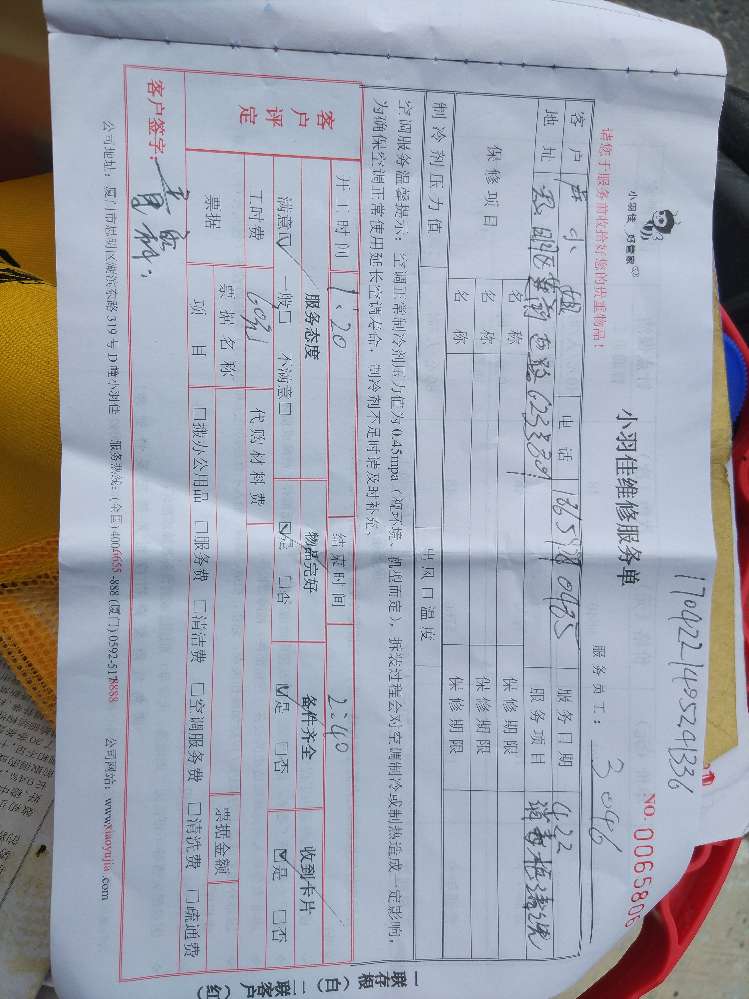 170922149524336
小羽佳 好管家
小羽佳维修服务单
NO. 0065806
请您于服务前收拾好您的贵重物品!
服务员工: 3096
客户 小姐 电话 服务日期 4.22
地址 服务项目
保修项目 名称 保修期限
名称 保修期限
名称 保修期限
制冷剂压力值 出风口温度
空调服务温馨提示: 空调正常制冷剂压力值为0.45mpa (视环境、机型而定), 拆装过程会对空调制冷或制热造成一定影响,
为确保空调正常使用延长空调寿命, 制冷剂不足时请及时补充。
开工时间 1:20 结束时间 2:40
客户评定 服务态度 物品完好 备件齐全 收到卡片
满意☑ 一般□ 不满意□ ☑是 □否 ☑是 □否 ☑是 □否
工时费 代购材料费
票据 票据名称 票据金额
项目 □拨办公用品 □服务费 □清洁费 □空调服务费 □清洗费 □疏通费
客户签字:
公司地址: 厦门市思明区湖滨东路319号D幢小羽佳 服务热线: (全国) 4004655-888 (厦门) 0592-5178888 公司网站: www.xiaoyujia.com
一联存根(白) 二联客户(红)